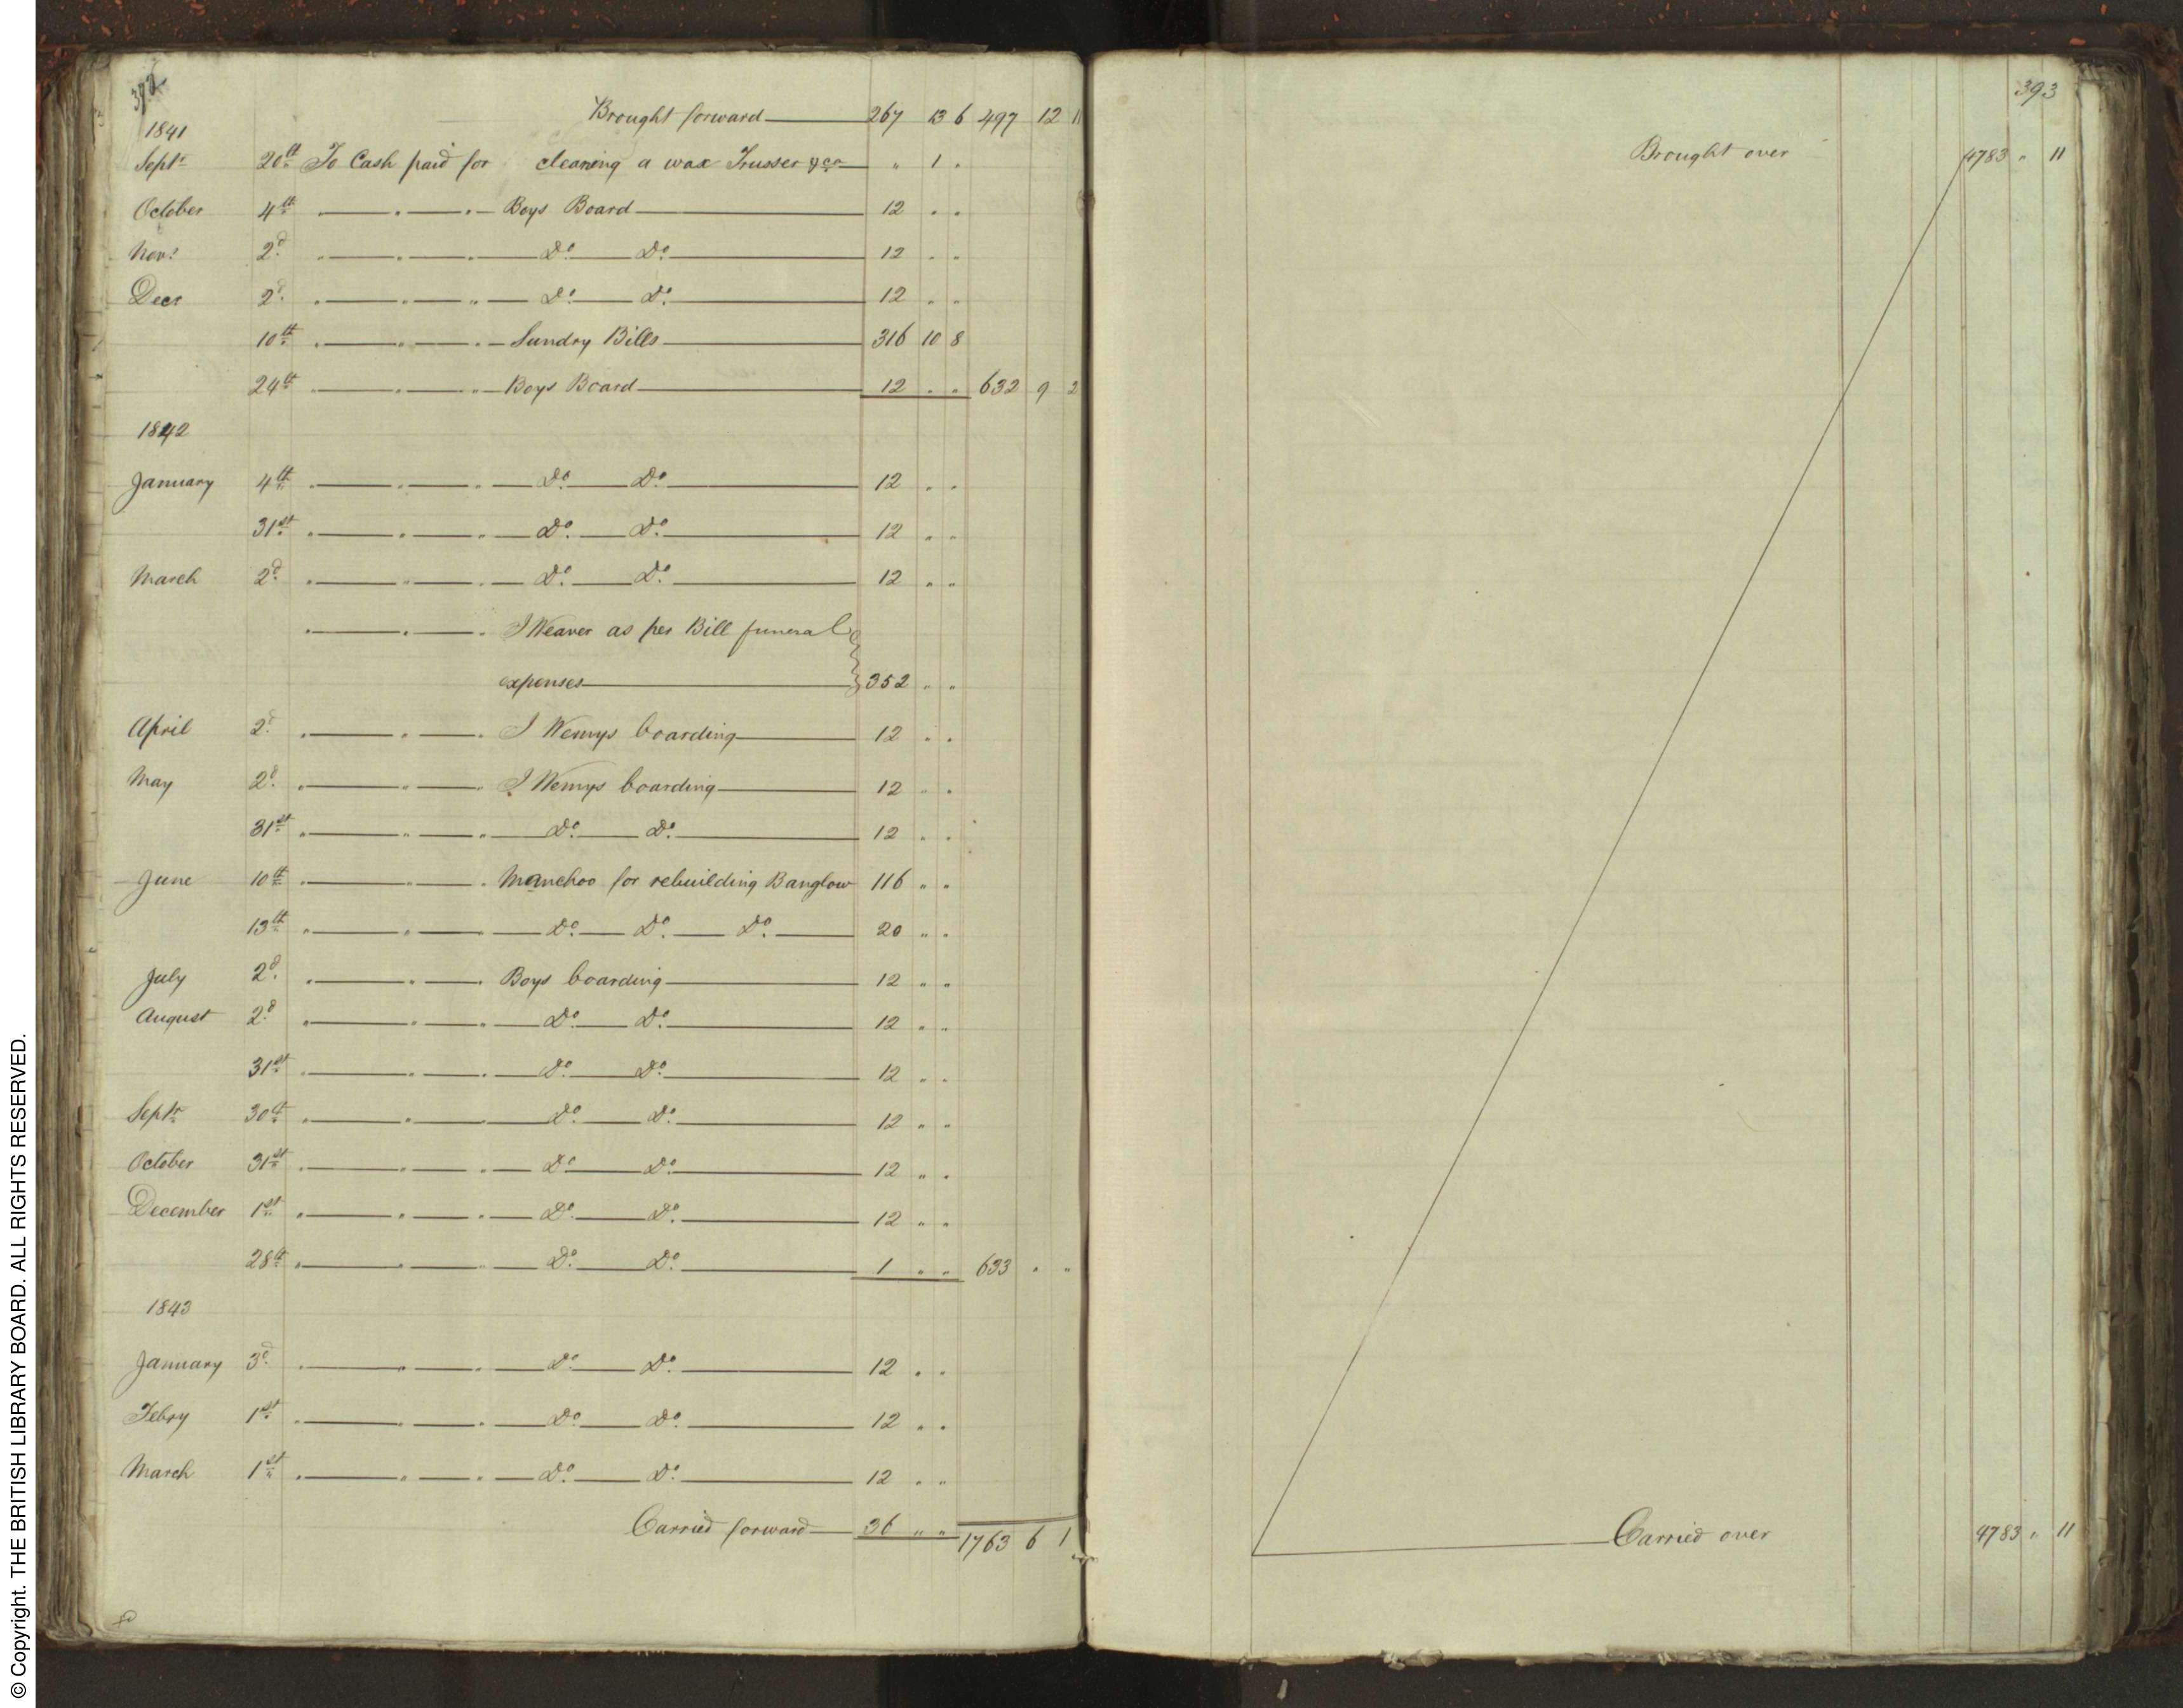 392
Brought forward 267 13 6 497 12 11
1841
Septr 20th To Cash paid for cleaning a wax Trusser &ca " 1 "
October 4th " " " Boys Board 12 " "
Novr 2d " " " Do Do 12 " "
Decr 2d " " " Do Do 12 " "
10th " " " Sundry Bills 316 10 8
24th " " " Boys Board 12 " " 632 9 2
1842
January 4th " " " Do Do 12 " "
31st " " " Do Do 12 " "
March 2d " " " Do Do 12 " "
" " " J Weaver as per Bill funeral
expenses 352 " "
April 2d " " " J Wemys boarding 12 " "
May 2d " " " J Wemys boarding 12 " "
31st " " " Do Do 12 " "
June 10th " " " Manchoo for rebuilding Banglow 116 " "
13th " " " Do Do Do 20 " "
July 2d " " " Boys boarding 12 " "
August 2d " " " Do Do 12 " "
31st " " " Do Do 12 " "
Septr 30th " " " Do Do 12 " "
October 31st " " " Do Do 12 " "
December 1st " " " Do Do 12 " "
28th " " " Do Do 1 " " 633 " "
1843
January 3d " " " Do Do 12 " "
Febry 1st " " " Do Do 12 " "
March 1st " " " Do Do 12 " "
Carried forward 36 " " 1763 6 1
393
Brought over 4783 " 11
Carried over 4783 " 11
© Copyright. THE BRITISH LIBRARY BOARD. ALL RIGHTS RESERVED.